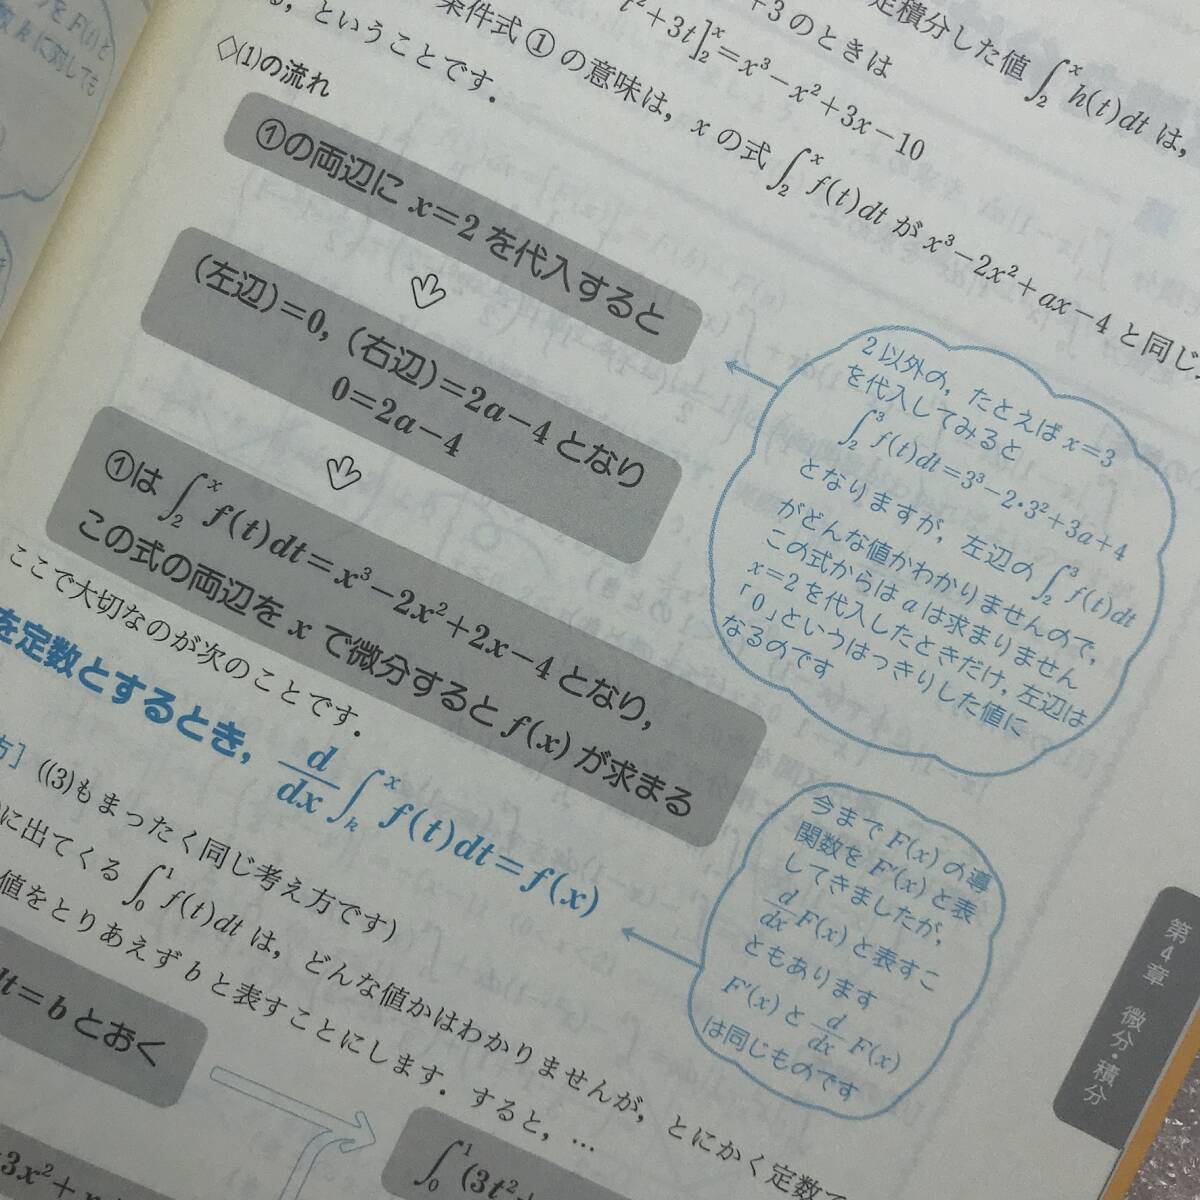 定積分した値 ∫₂ˣh(t)dt は,
+3のときは
t²+3t]₂ˣ=x³−x²+3x−10
条件式①の意味は, xの式 ∫₂ˣf(t)dt が x³−2x²+ax−4 と同じ.
る, ということです.
◇(1)の流れ
①の両辺に x=2 を代入すると
(左辺)=0, (右辺)=2a−4 となり
0=2a−4
①は ∫₂ˣf(t)dt=x³−2x²+2x−4 となり,
この式の両辺を x で微分すると f(x) が求まる
2以外の, たとえば x=3
を代入してみると
∫₂³f(t)dt=3³−2・3²+3a+4
となりますが, 左辺の ∫₂³f(t)dt
がどんな値かわかりませんので,
この式からは a は求まりません
x=2 を代入したときだけ, 左辺は
「0」というはっきりした値に
なるのです
ここで大切なのが次のことです.
を定数とするとき, d/dx ∫ₖˣf(t)dt=f(x)
今まで F(x) の導
関数を F′(x) と表
してきましたが,
d/dx F(x) と表すこ
ともあります
F′(x) と d/dx F(x)
は同じものです
方] ((3)もまったく同じ考え方です)
に出てくる ∫₀¹f(t)dt は, どんな値かはわかりませんが, とにかく定数で
値をとりあえず b と表すことにします. すると, …
dt=b とおく
∫₀¹(3t²+
3x²+
第4章 微分・積分
を F(t) と
数 k に対しても